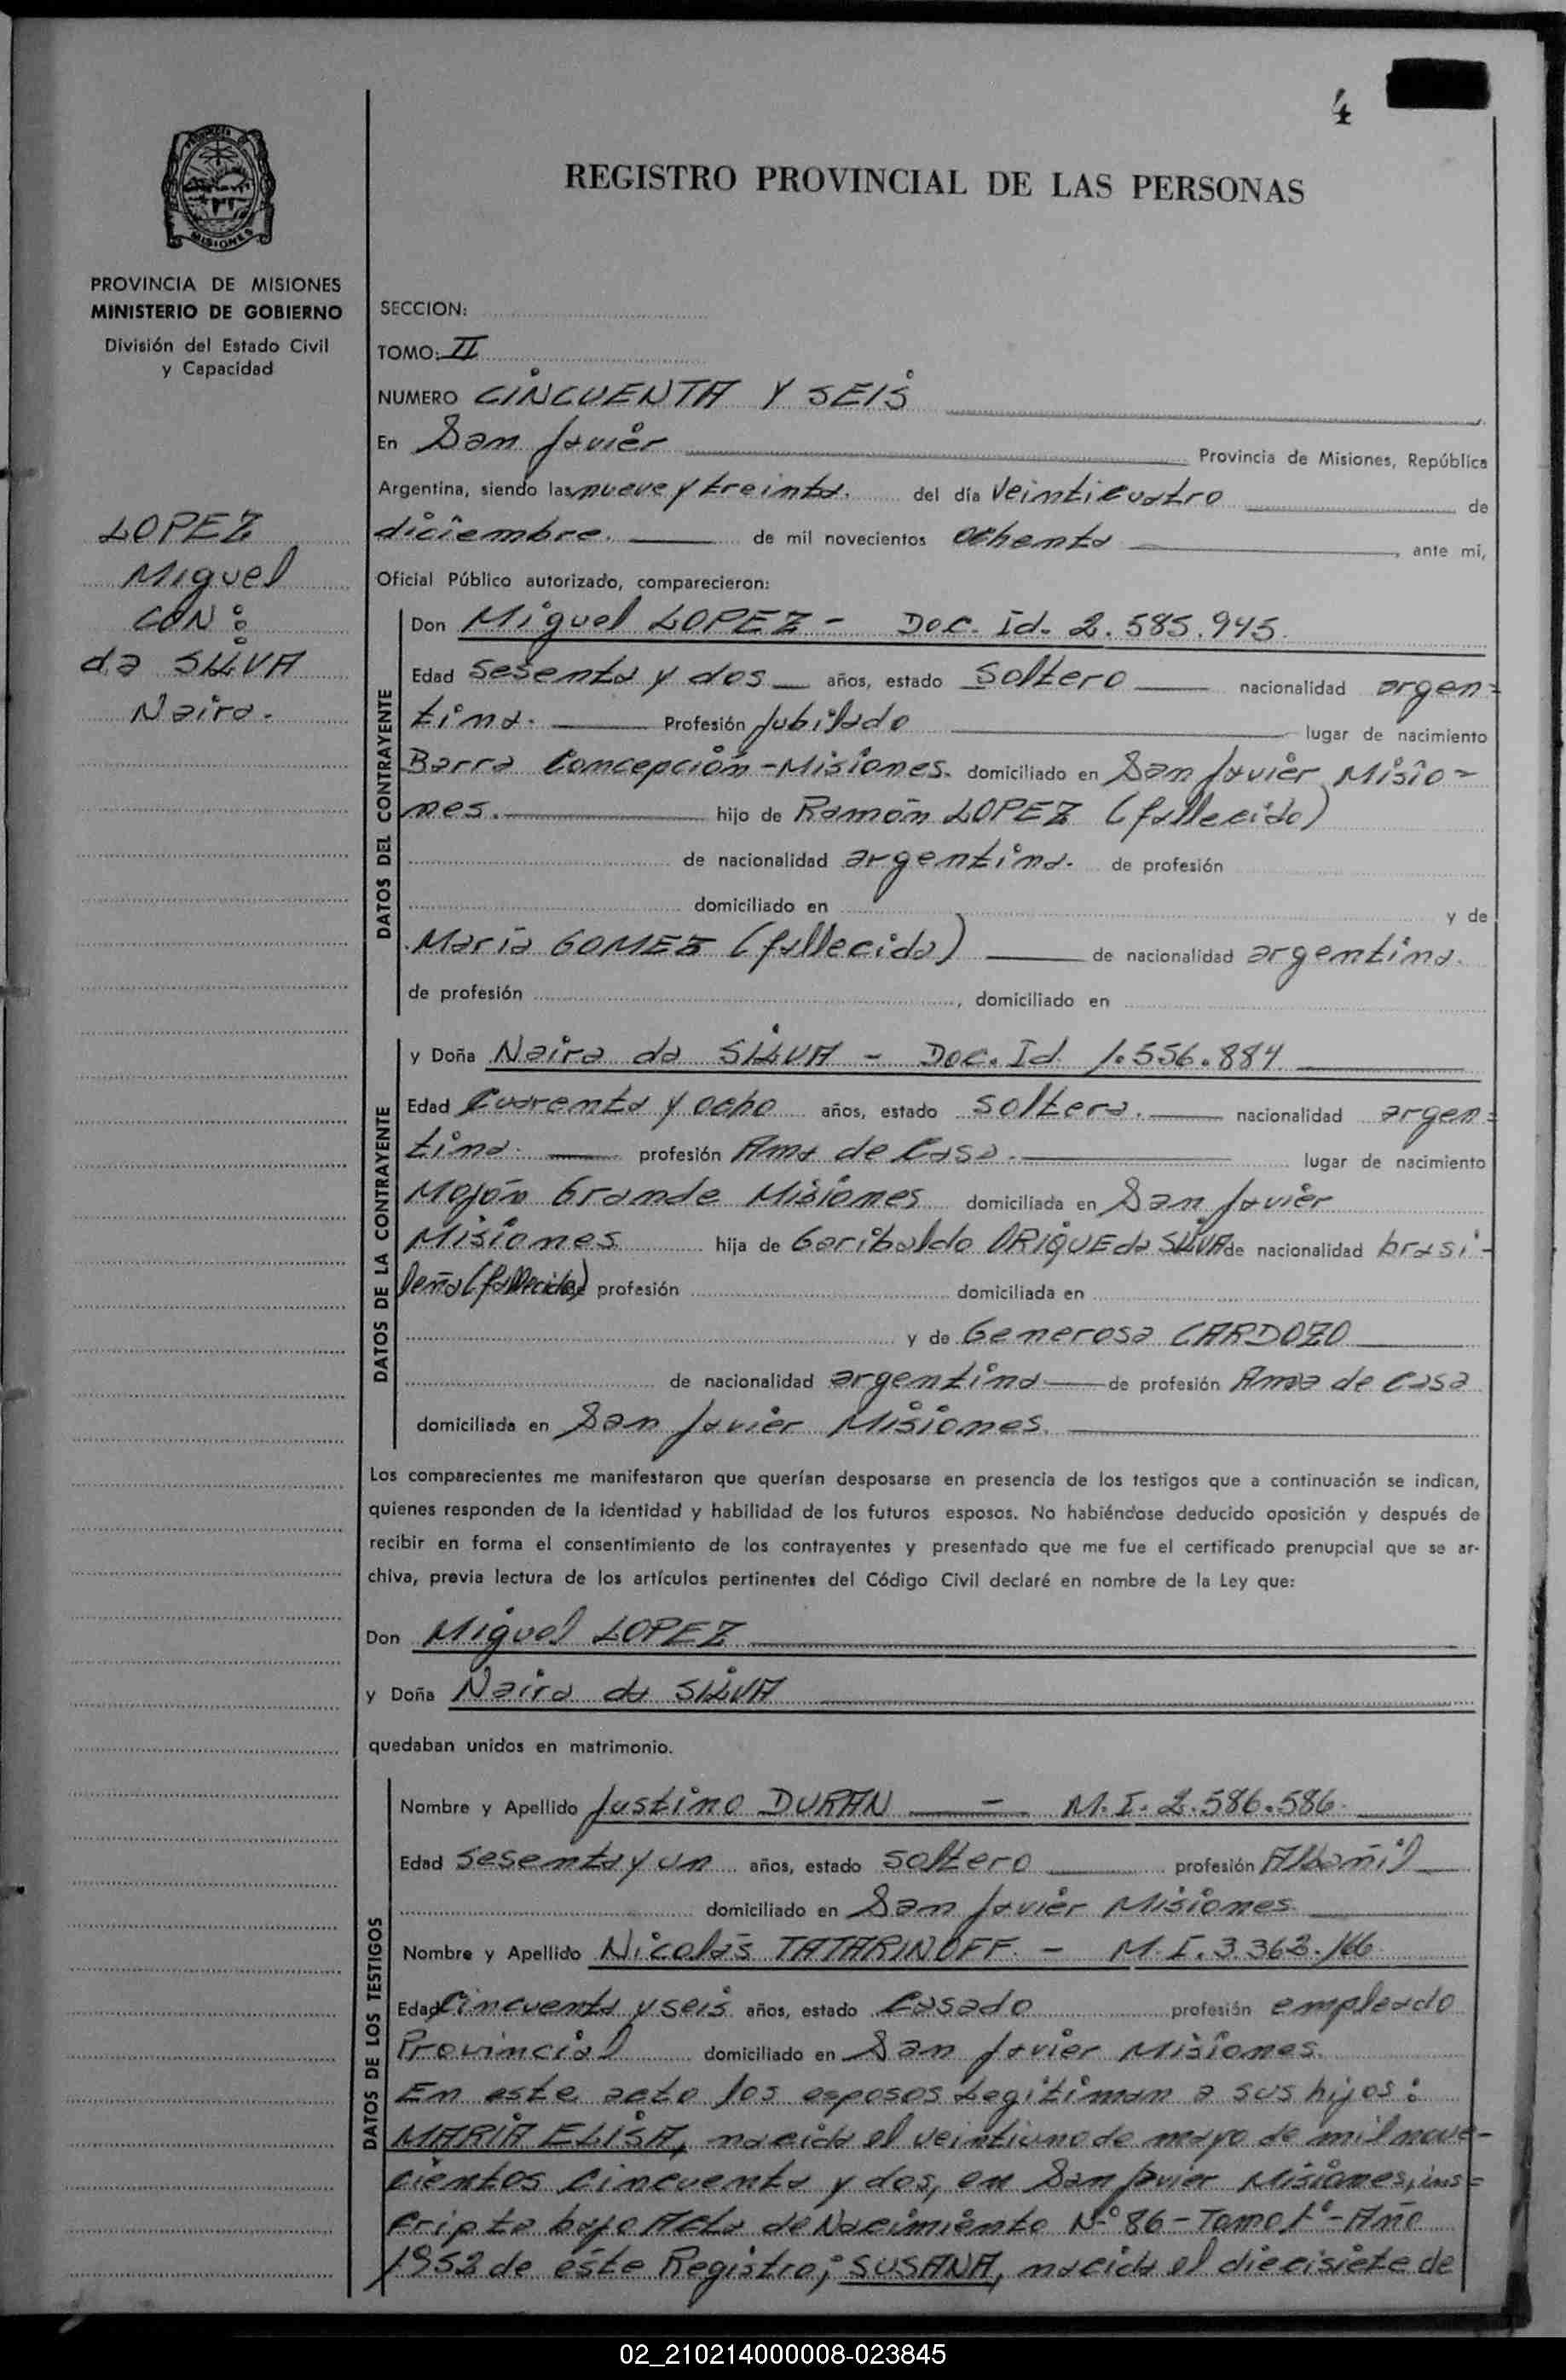 4
REGISTRO PROVINCIAL DE LAS PERSONAS
MISIONES
PROVINCIA DE MISIONES
MINISTERIO DE GOBIERNO
División del Estado Civil
y Capacidad
LOPEZ
Miguel
CON:
da SILVA
Naira.
SECCION:
TOMO: II
NUMERO CINCUENTA Y SEIS
En San Javier Provincia de Misiones, República
Argentina, siendo las nueve y treinta. del día Veinticuatro de
diciembre. de mil novecientos ochenta, ante mí,
Oficial Público autorizado, comparecieron:
DATOS DEL CONTRAYENTE
Don Miguel LOPEZ - Doc. Id. 2.585.945.
Edad Sesenta y dos años, estado Soltero nacionalidad argen=
tina. Profesión Jubilado lugar de nacimiento
Barra Concepción - Misiones. domiciliado en San Javier Misio=
nes. hijo de Ramón LOPEZ (fallecido)
de nacionalidad argentina. de profesión
domiciliado en y de
María GOMEZ (fallecida) de nacionalidad argentina.
de profesión , domiciliado en
DATOS DE LA CONTRAYENTE
y Doña Naira da SILVA - Doc. Id 1.556.884
Edad Cuarenta y ocho años, estado Soltera. nacionalidad argen=
tina. profesión Ama de Casa. lugar de nacimiento
Mojón Grande Misiones domiciliada en San Javier
Misiones hija de Garibaldo ORIQUE da SILVA de nacionalidad brasi-
leña (fallecido) profesión domiciliada en
y de Generosa CARDOZO
de nacionalidad argentina de profesión Ama de Casa
domiciliada en San Javier Misiones.
Los comparecientes me manifestaron que querían desposarse en presencia de los testigos que a continuación se indican,
quienes responden de la identidad y habilidad de los futuros esposos. No habiéndose deducido oposición y después de
recibir en forma el consentimiento de los contrayentes y presentado que me fue el certificado prenupcial que se ar-
chiva, previa lectura de los artículos pertinentes del Código Civil declaré en nombre de la Ley que:
Don Miguel LOPEZ
y Doña Naira da SILVA
quedaban unidos en matrimonio.
DATOS DE LOS TESTIGOS
Nombre y Apellido Justino DURAN - M.I. 2.586.586.
Edad Sesenta y un años, estado Soltero profesión Albañil
domiciliado en San Javier Misiones.
Nombre y Apellido Nicolás TATARINOFF. - M.I. 3.362.166.
Edad Cincuenta y seis años, estado Casado profesión empleado
Provincial domiciliado en San Javier Misiones.
En este acto los esposos Legitiman a sus hijos:
MARIA ELISA, nacida el veintiuno de mayo de mil nove-
cientos cincuenta y dos, en San Javier Misiones, ins=
cripta bajo Acta de Nacimiento Nº 86 - Tomo 1º - Año
1952 de este Registro; SUSANA, nacida el diecisiete de
02_210214000008-023845